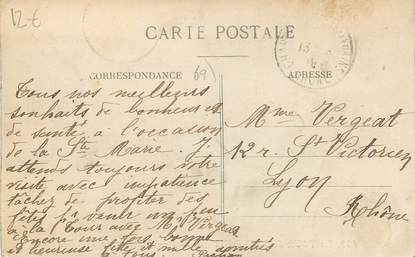 12 €
CARTE POSTALE
CORRESPONDANCE
69)
ADRESSE
Tous nos meilleurs
souhaits de bonheur et
de santé à l'occasion
de la Ste Marie. J'
attends toujours votre
visite avec impatience
tâcher de profiter des
fêtes pr venir un peu
à la Tour avec Mr Vergeat
Encore une fois bonne
et heureuse fête et mille amitiés
à tous.
Mme Vergeat
12 r. St Victorien
Lyon
Rhône